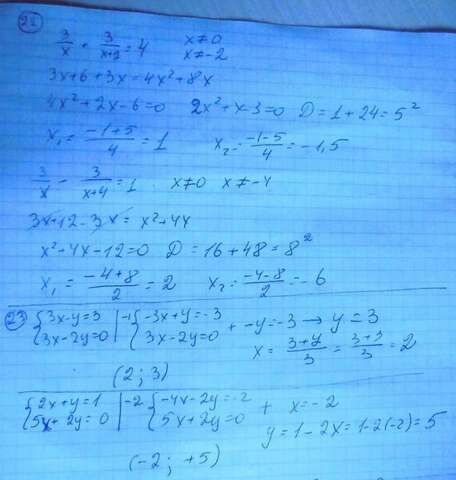 22
3/x + 3/(x+2) = 4   x≠0
x≠-2
3x+6+3x=4x²+8x
4x²+2x-6=0   2x²+x-3=0   D=1+24=5²
x₁=(-1+5)/4=1   x₂=(-1-5)/4=-1,5
3/x - 3/(x+4)=1   x≠0   x≠-4
3x+12-3x=x²+4x
x²-4x-12=0   D=16+48=8²
x₁=(-4+8)/2=2   x₂=(-4-8)/2=-6
23 {3x-y=3 |-1 {-3x+y=-3 + -y=-3 → y=3
{3x-2y=0 | {3x-2y=0   x=(3+y)/3=(3+3)/3=2
(2; 3)
{2x+y=1 |-2 {-4x-2y=-2 + x=-2
{5x+2y=0 | {5x+2y=0   y=1-2x=1-2(-2)=5
(-2; +5)